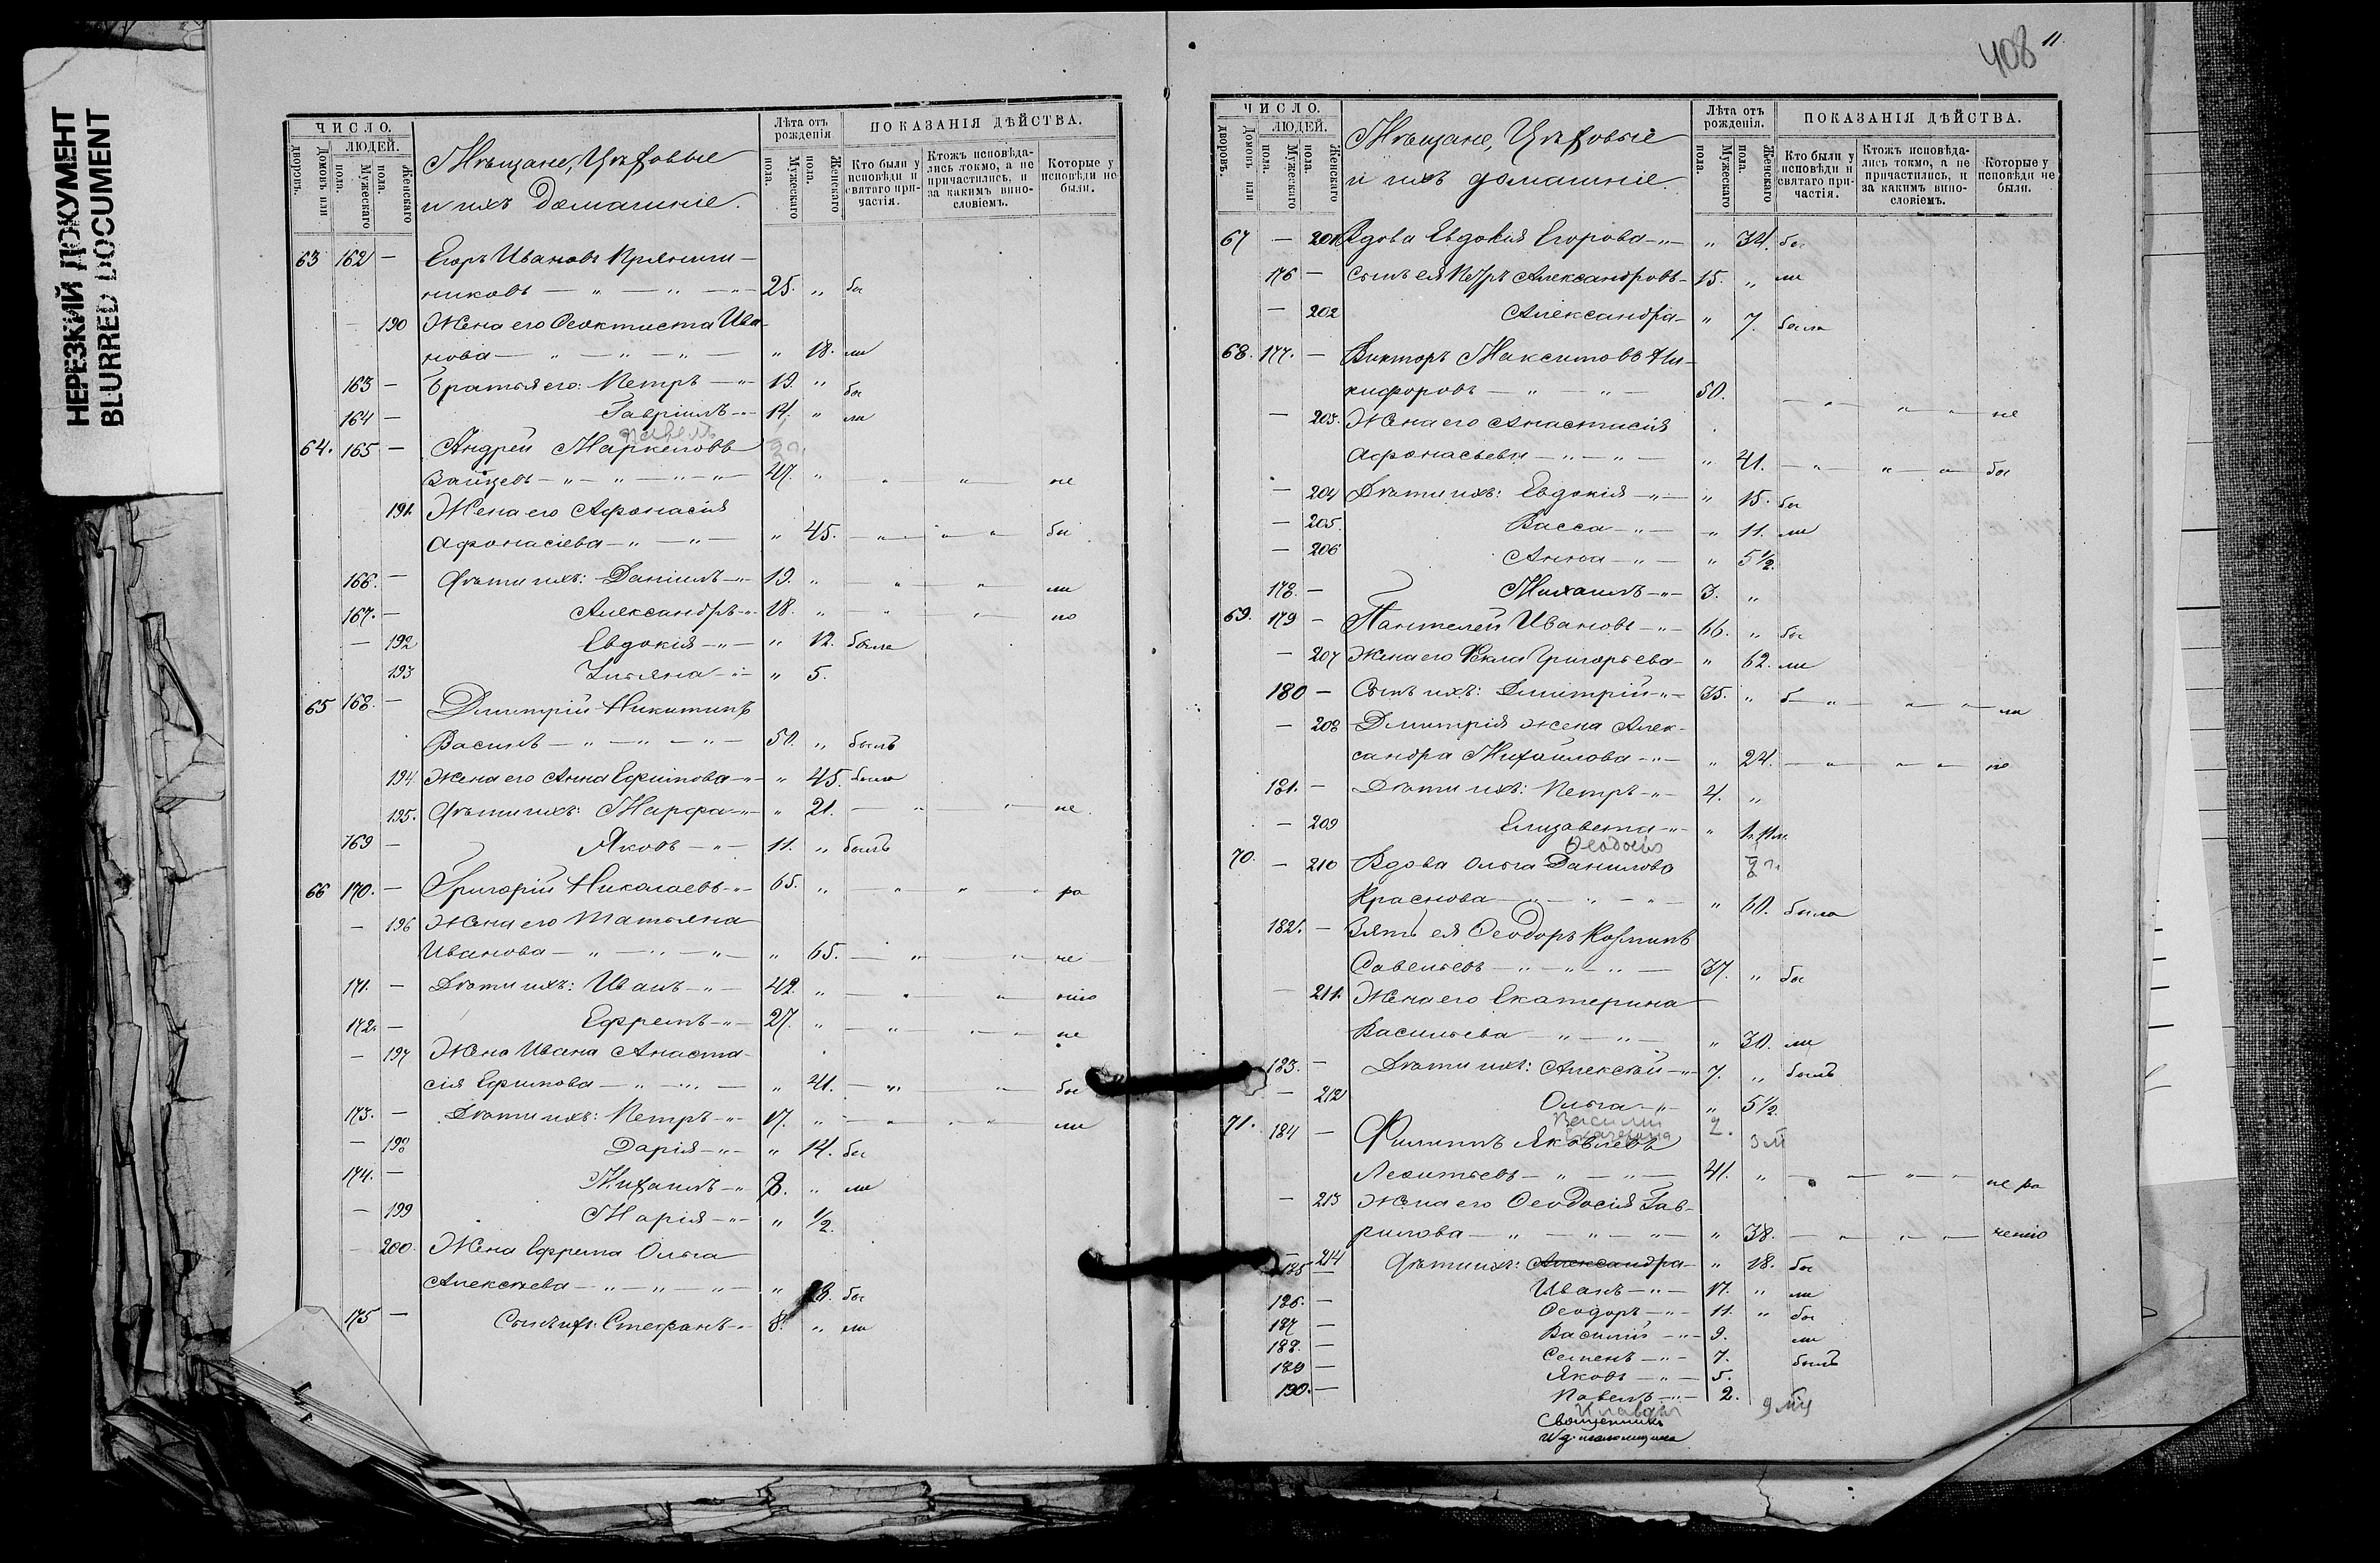 НЕРЕЗКИЙ ДОКУМЕНТ
BLURRED DOCUMENT
ЧИСЛО.
Домовъ или дворовъ.
ЛЮДЕЙ.
Мужескаго пола.
Женскаго пола.
Мѣщане, Цѣховые
и ихъ домашніе.
Лѣта отъ рожденія
Мужескаго пола.
Женскаго пола.
ПОКАЗАНІЯ ДѢЙСТВА.
Кто были у исповѣди и святаго причастія.
Ктожъ исповѣдались токмо, а не причастились, и за какимъ винословіемъ.
Которые у исповѣди не были.
63 162 — Егоръ Ивановъ Прянишниковъ — " — " — " — 25. " бы
— 190 Жена его Ѳеоктиста Ива-
нова — " — " — " — " 18. ли
163 — Братья его: Петръ — " — 19. " бы
164 — Гавріилъ — " — 14. " ли
Павелъ
64. 165 — Андрей Маркеловъ
Зайцевъ — " — " — " — " — 47. " " " — не
191. Жена его Афонасія
Афонасіева — " — " — " 45. — " — " " бы
166. — Дѣти ихъ: Даніилъ — " — 19. " — " " ли
167. — Александръ — " — 18. " " " — по
— 192 Евдокія — " — " 12. была
193 Ульяна — " — " 5.
65 168. — Димитрій Никитинъ
Василь — " — " — " — 50. " былъ
194. Жена его Анна Ефимова — " — " 45. была
195. Дѣти ихъ: Марфа — " — " 21. — " " — не
169 — Яковъ — " — 11. " былъ
66 170. — Григорій Николаевъ — " — 65. " — " " " ра
— 196 Жена его Татьяна
Иванова — " — " — " — " 65. — " " — че
171. — Дѣти ихъ: Иванъ — " — 42. " — " " — нію
172. — Ефремъ — " — 27. " — " " — не
— 197 Жена Ивана Анаста-
сія Ефимова — " — " — " 41. — " " — бы
173. — Дѣти ихъ: Петръ — " — 17. " — " " " ли
— 198 Дарія — " — " 14. бы
174. — Михаилъ — " 8. " ли
— 199 Марія — " — " 1/2.
— 200. Жена Ефрема Ольга
Алексѣева — " — " — " — " 28. бы
175 — Сынъ ихъ: Стефанъ — " 8. " ли
408 11.
ЧИСЛО.
Домовъ или дворовъ.
ЛЮДЕЙ.
Мужескаго пола.
Женскаго пола.
Мѣщане, Цѣховые
и ихъ домашніе.
Лѣта отъ рожденія.
Мужескаго пола.
Женскаго пола.
ПОКАЗАНІЯ ДѢЙСТВА.
Кто были у исповѣди и святаго причастія.
Ктожъ исповѣдались токмо, а не причастились, и за какимъ винословіемъ.
Которые у исповѣди не были.
67 — 201 Вдова Евдокія Егорова — " — " 34. бы
176 — Сынъ ея Петръ Александровъ — 15. " ли
— 202 Александра — " 7. была
68. 177. — Викторъ Максимовъ Ни-
кифоровъ — " — " — 50. — " — " — " не
— 203. Жена его Анастасія
Афонасьева — " — " — " 41. — " " — " — бы
— 204 Дѣти ихъ: Евдокія — " — " 15. бы
— 205. Васса — " — " 11. ли
— 206 Анна — " — " 5 1/2.
178. — Михаилъ — " — 3. "
69. 179 — Пантелей Ивановъ — " — 66. " бы
— 207 Жена его Ѳекла Григорьева — " 62. ли
180 — Сынъ ихъ: Димитрій — " — 35. " б — " — " — " ли
— 208 Димитрія жена Алек-
сандра Михайлова — " — " 24. — " — " — " не
181. — Дѣти ихъ: Петръ — " — 4. "
— 209 Елизавета — " — " 1. 11м.
Ѳеодосія
70. — 210 Вдова Ольга Данилова
Краснова — " — " — " — " 60. была
182. — Зять ея Ѳеодоръ Козминъ
Савельевъ — " — " — " — 37. " бы
— 211. Жена его Екатерина
Васильева — " — " — " 30. ли
183. — Дѣти ихъ: Алексѣй — " — 7. " былъ
— 212 Ольга — " — " 5 1/2.
Василій 2.
71. 184 — Филиппъ Яковлевъ
Леонтьевъ — " — " — 41. " — " — " — не ра
— 213 Жена его Ѳеодосія Гав-
рилова — " — " — " — " 38. — " — " — " ченію
— 214 Дѣти ихъ: Александра — " 18. бы
185 — Иванъ — " — 17. " ли
186. — Ѳеодоръ — " — 11. " бы
187 — Василій — " — 9. ли
188. — Семенъ — " — 7. былъ
189 — Яковъ — " — 5.
190. — Павелъ — " — 2.
Клавдія 9 мц
Священникъ